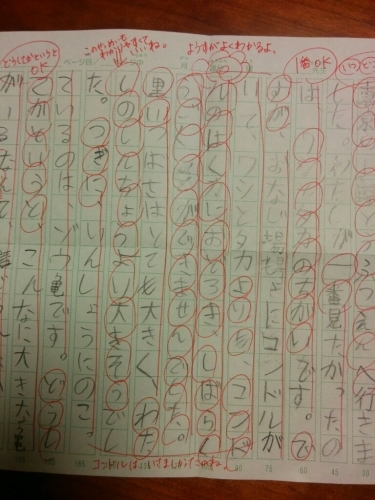 えんへ行きま
した。わたしが一番見たかったの
は、です。で
すが、おなじ場しょにコンドルが
いて、ワシとタカよりも、コンド
ルのはくにおどろき、しばらく
うごができませんでした。
黒いつばさはとても大きく、わた
しのしんちょうより大きそうでし
た。つぎに、いんしょうにのこっ
ているのは、ゾウ亀です。どうし
てかというと、こんなに大きな亀
がいるなんて、信じ
いつ
番OK
ようすがよくわかるよ。
このせつめいも
わかりやすくて
いいね。
どうしてかというと
OK
コンドルは